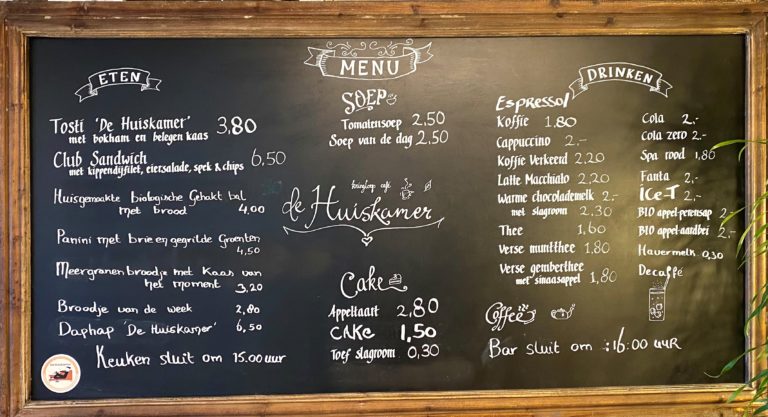 MENU
ETEN
Tosti 'De Huiskamer' 3,80
met bokham en belegen kaas
Club Sandwich 6,50
met kippendijfilet, eiersalade, spek & chips
Huisgemaakte biologische Gehakt bal
met brood 4,00
Panini met brie en gegrilde Groenten
4,50
Meergranenbroodje met Kaas van
het moment 3,20
Broodje van de week 2,80
Daphap 'De Huiskamer' 6,50
Keuken sluit om 15.00 uur
SOEP
Tomatensoep 2,50
Soep van de dag 2,50
kringloop café
de Huiskamer
Cake
Appeltaart 2,80
CAKE 1,50
Toef slagroom 0,30
DRINKEN
Espresso/
Koffie 1,80
Cappuccino 2,-
Koffie Verkeerd 2,20
Latte Macchiato 2,20
Warme chocolademelk 2,-
met slagroom 2,30
Thee 1,60
Verse muntthee 1,80
Verse gemberthee
met sinaasappel 1,80
Coffee
Cola 2,-
Cola zero 2,-
Spa rood 1,80
Fanta 2,-
ice-T 2,-
BIO appel-perensap 2,-
BIO appel-aardbei 2,-
Havermelk 0,30
Decaffé
Bar sluit om :16:00 uur